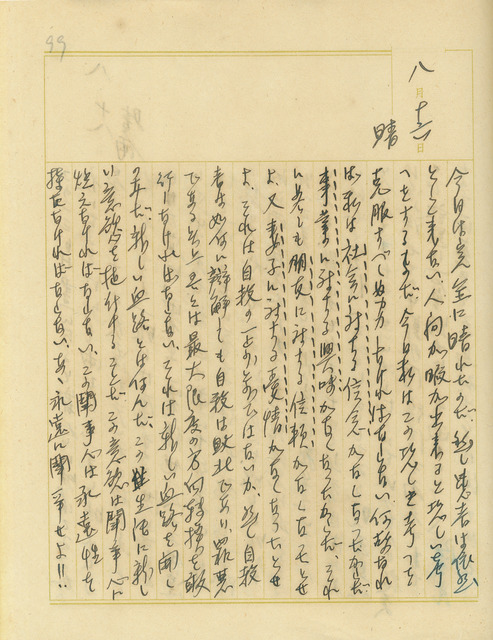 99
八月十六日
晴
今日は完全に晴れたのだ。然し患者は依然
として来ない、人間が暇が出来ると恐しい考
へをするものだ。今日私はこの恐しき考へを
克服すべく努力しなければならない。何故なれ
ば私は社会に対する信念がなくなったからだ
事業に対する興味がなくなったからだ、それ
に若しも朋友に対する信頼がなくなったとせ
よ、又妻子に対する愛情がなくなったとせ
よ、それは自殺の一歩の前ではないか、然し自殺
者が如何に辯解しても自殺は敗北であり、罪悪
である以上吾々は最大限度の方向転換を敢
行しなければならない。それは新しい血路を開く
のだ。新しい血路とは何んだ。この生活に新し
い意欲を抱付することだ この意欲は闘争心に
燃えなければならない。この闘争心は永遠性を
持たなければならない、あゝ永遠に闘争せよ!!